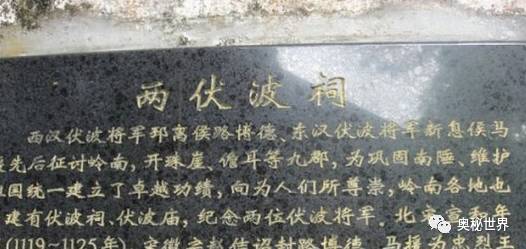 两伏波祠
西汉伏波将军邳离侯路博德、东汉伏波将军新息侯马
先后征讨岭南,开珠崖、儋耳等九郡,为巩固南陲、维护
国统一建立了卓越功绩,向为人们所尊崇,岭南各地也
建有伏波祠、伏波庙,纪念两位伏波将军。北宋宣和年
(1119~1125年)
封路博德、马援为忠烈王
奥秘世界